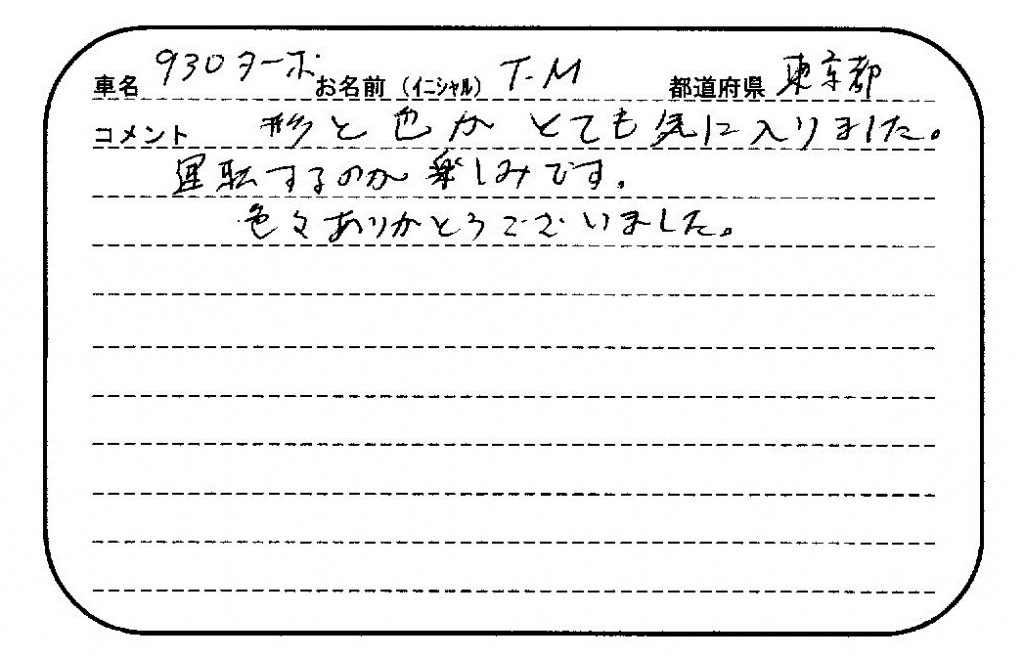 車名 930ターボ お名前（イニシャル） T.M 都道府県 東京都
コメント 形と色がとても気に入りました。
運転するのが楽しみです。
色々ありがとうございました。